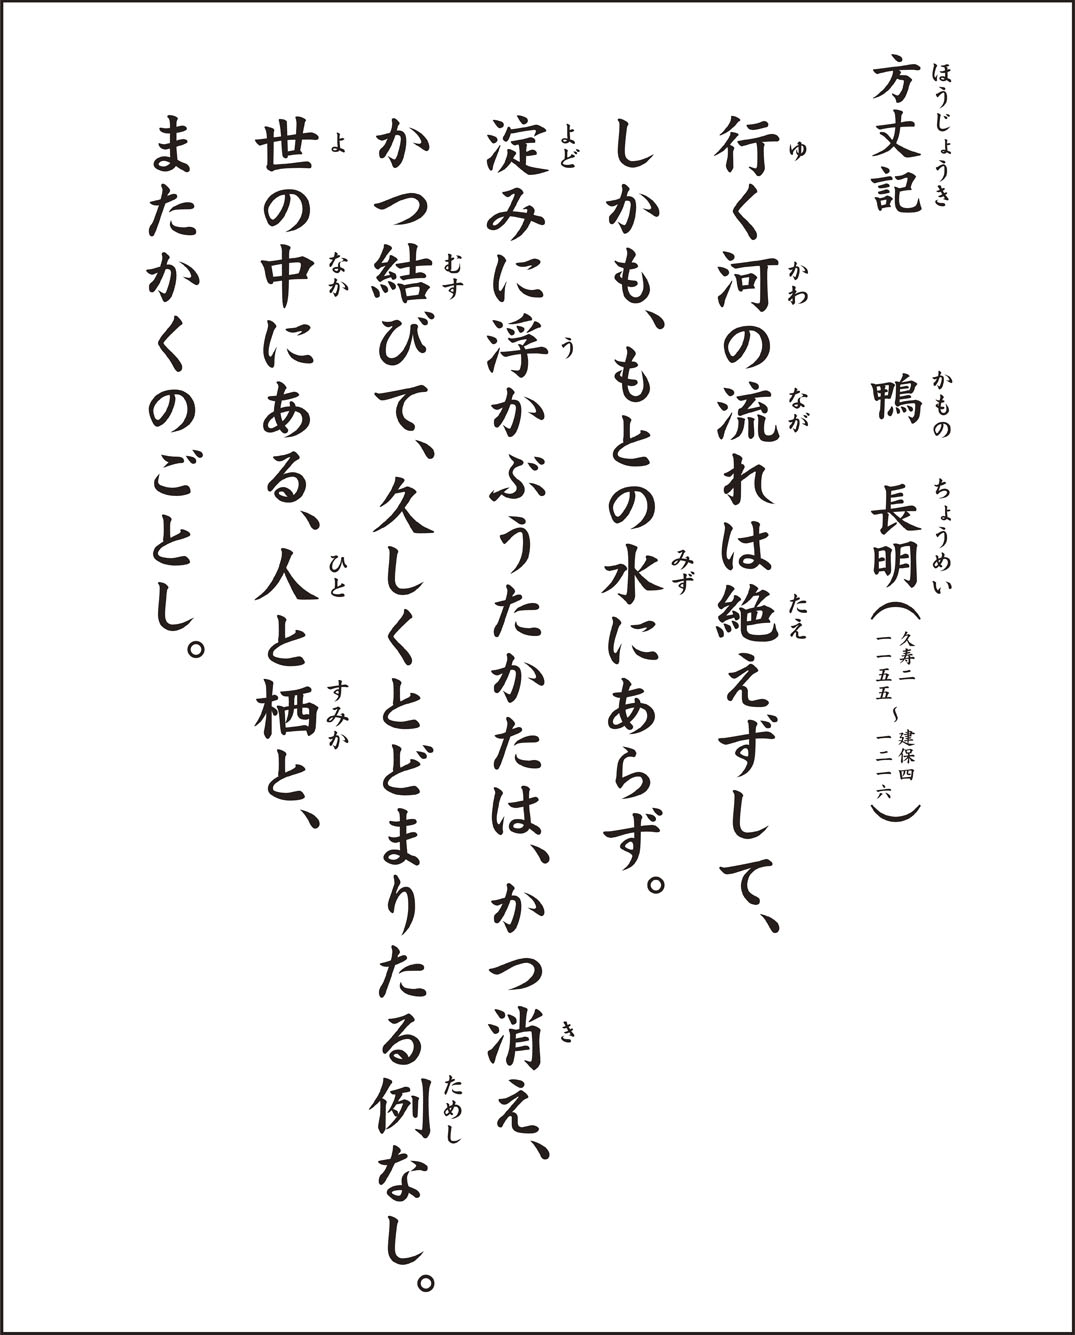 方丈記　鴨　長明（久寿二 一一五五～建保四 一二一六）
ほうじょうき　かものちょうめい
行く河の流れは絶えずして、
ゆ　かわ　なが　たえ
しかも、もとの水にあらず。
みず
淀みに浮かぶうたかたは、かつ消え、
よど　う　き
かつ結びて、久しくとどまりたる例なし。
むす　ためし
世の中にある、人と栖と、
よ　なか　ひと　すみか
またかくのごとし。